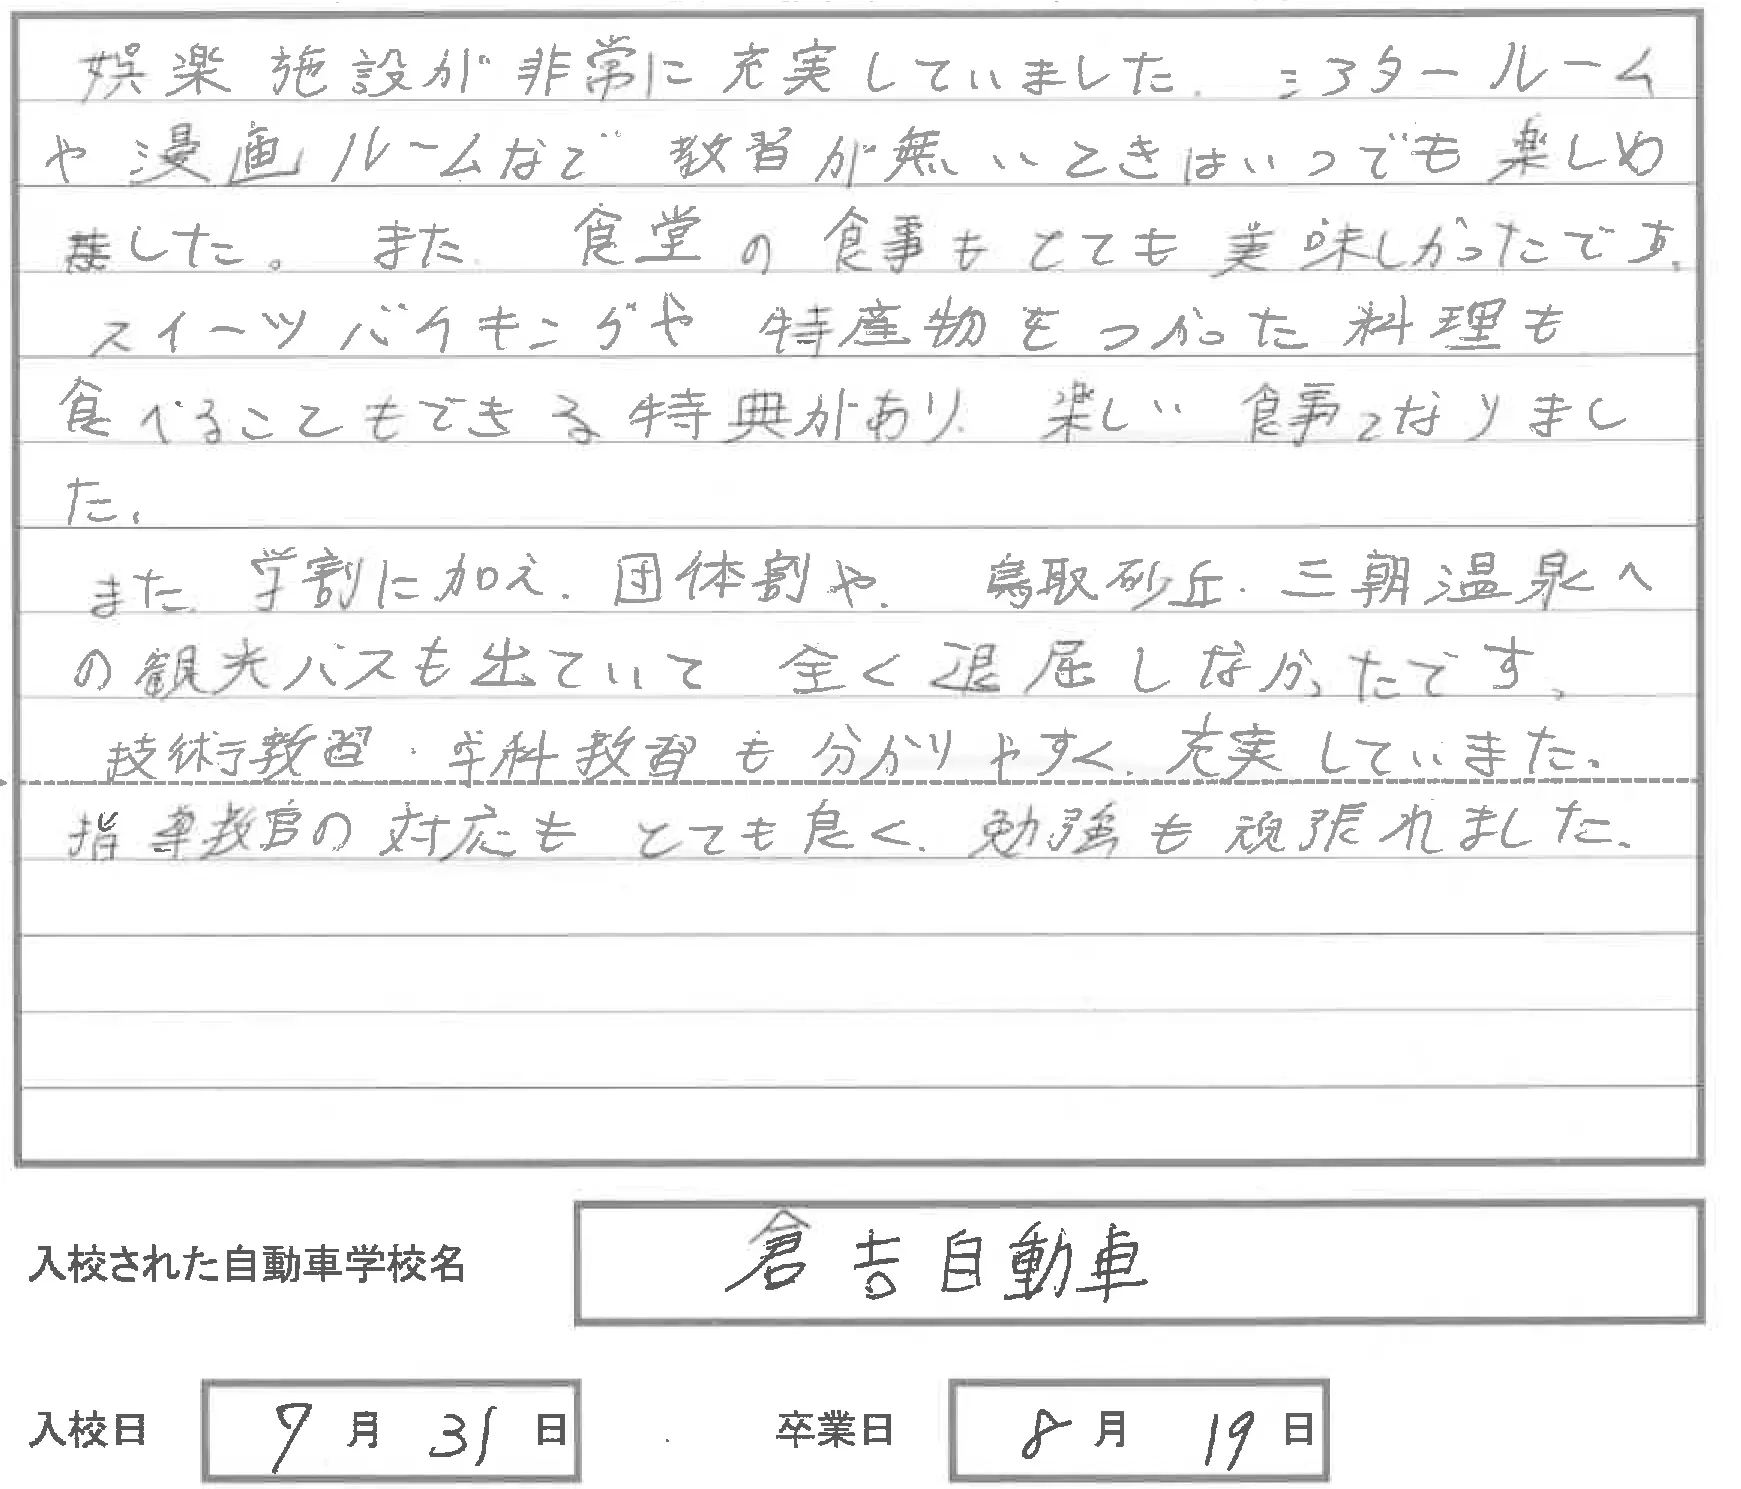 娯楽施設が非常に充実していました。ミアタールーム
や漫画ルームなど教習が無いときはいつでも楽しめ
ました。また、食堂の食事もとても美味しかったです。
スイーツバイキングや特産物をつかった料理も
食べることもできる特典があり、楽しい食事となりまし
た。
また、学割に加え、団体割や、鳥取砂丘・三朝温泉へ
の観光バスも出ていて全く退屈しなかったです。
技術教習・学科教習も分かりやすく、充実していまた。
指導教官の対応もとても良く、勉強も頑張れました。
入校された自動車学校名 倉吉自動車
入校日 7月31日 卒業日 8月19日